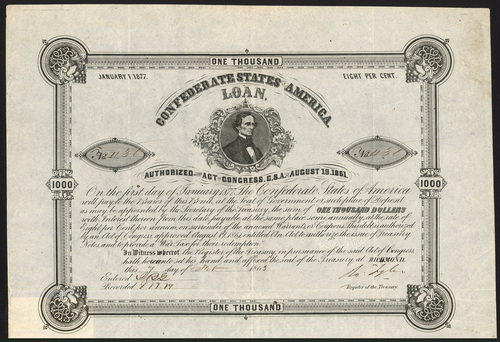 ONE THOUSAND
JANUARY 1, 1877.
EIGHT PER CENT.
CONFEDERATE STATES AMERICA.
LOAN.
AUTHORIZED ACT CONGRESS, C.S.A. AUGUST 19, 1861.
1000
1000
On the first day of January 1877, The Confederate States of America
will pay to the Bearer of this Bond, at the Seat of Government or such place of Deposit
as may be appointed by the Secretary of the Treasury, the sum of ONE THOUSAND DOLLARS
with Interest thereon from this date, payable at the same place semi-annually at the rate of
Eight per Cent per annum on surrender of the annexed Warrants or Coupons. This debt is authorized
by an Act of Congress approved August 19, 1861, entitled An Act to authorize the issue of Treasury
Notes and to provide a War Tax for their redemption.
In Witness whereof, the Register of the Treasury in pursuance of the said Act of Congress
hath hereunto set his hand and affixed the seal of the Treasury at RICHMOND,
this day of 1863
Entered
Recorded
Register of the Treasury.
ONE THOUSAND